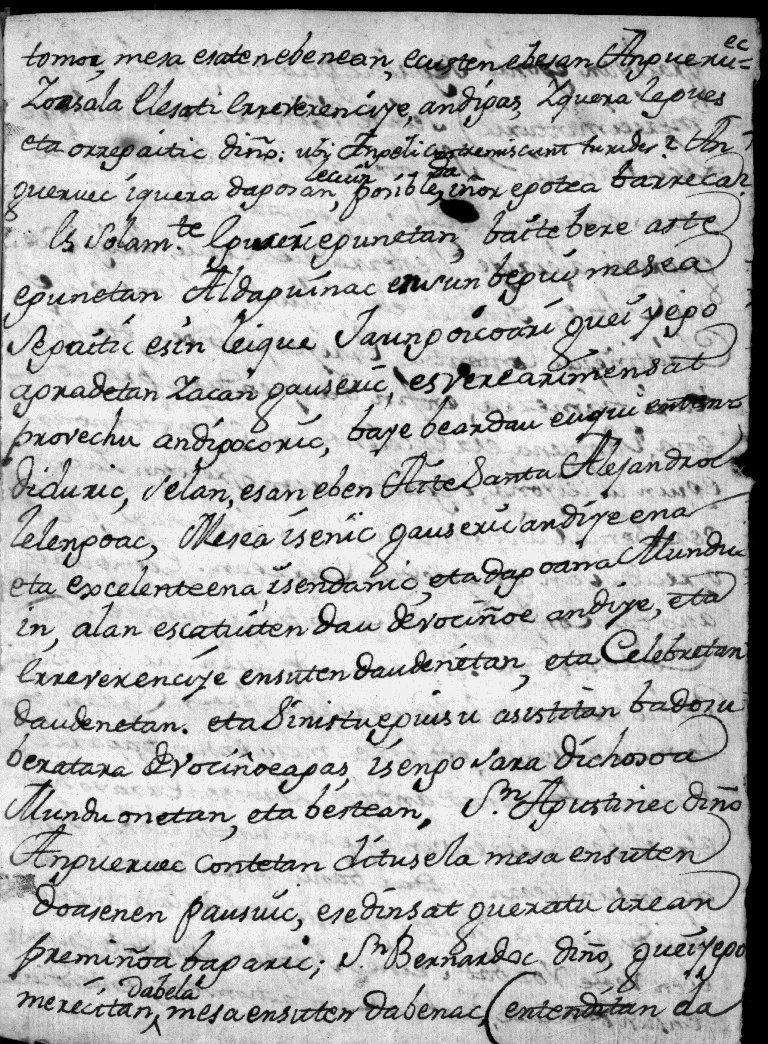 tomoz, mesa esaten ebenean, ecusten ebesan Anpueru=ec
Zoasala Elesati Erreverenciye andipas, Zquera lepues
eta orrepaitic diño: ubi Anpeli contremiscunt tu rides? An
gueruec iquera dagosan lecuun, posible da, iñor egotea barreca?
Es Solam.te Eguseriegunetan, baitebere aste
egunetan Aldaguinac ensun begui mesea
Segaitic esin leique Jaungoicoari gueiyego
agradetan Zacan gauseric, es verearimensat
provechu andigocoric, baye beardau eugui entën
diduric, Selan, esan eben Aite Santu Alejandroc
lelengoac, Mesea isenic gauseric andiyena
eta excelenteena, isendanic, eta dagoana Mundu
in, alan escatuten dau devociñoe andiye, eta
Erreverenciye ensuten daudenetan, eta Celebretan
daudenetan. eta Sinistuguisu asistitan badosu
beratara devociñoeagas, isengo sara dichosoa
Mundu onetan, eta bestean, S.n Agustinec diño
Anguervec contetan dituse la mesa ensuten
Doasenen pausuic, esedinsat gueratu arean
premiñoa bagaric; S.n Bernardoc diño, gueiyego
mereçitan dabela, mesa ensuten dabenac, (entenditan da